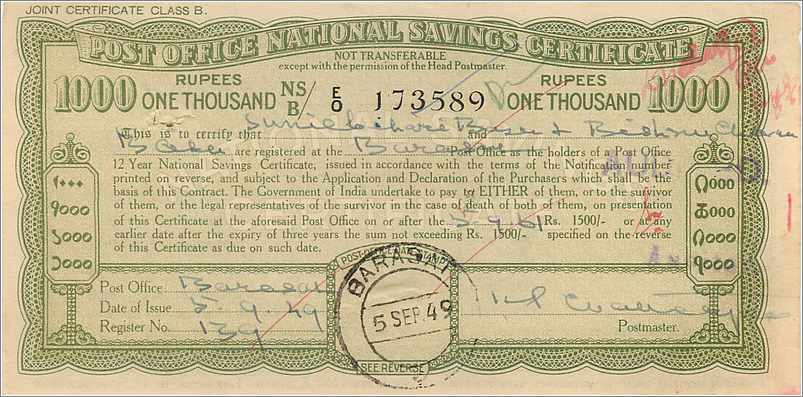 JOINT CERTIFICATE CLASS B.
POST OFFICE NATIONAL SAVINGS CERTIFICATE
NOT TRANSFERABLE
except with the permission of the Head Postmaster.
1000 RUPEES ONE THOUSAND NS/B E/O 173589 RUPEES ONE THOUSAND 1000
This is to certify that Sunil bihari Bose and & Bidhu
are registered at the Barasat Post Office as the holders of a Post Office
12 Year National Savings Certificate, issued in accordance with the terms of the Notification number
printed on reverse, and subject to the Application and Declaration of the Purchasers which shall be the
basis of this Contract. The Government of India undertake to pay to EITHER of them, or to the survivor
of them, or the legal representatives of the survivor in the case of death of both of them, on presentation
of this Certificate at the aforesaid Post Office on or after the 5.9.61 Rs. 1500/- or at any
earlier date after the expiry of three years the sum not exceeding Rs. 1500/- specified on the reverse
of this Certificate as due on such date.
१०००
POST-OFFICE DATE STAMP
Post Office Barasat
Date of Issue 5.9.49
Register No. 139
BARASAT
5 SEP. 49
Postmaster.
SEE REVERSE